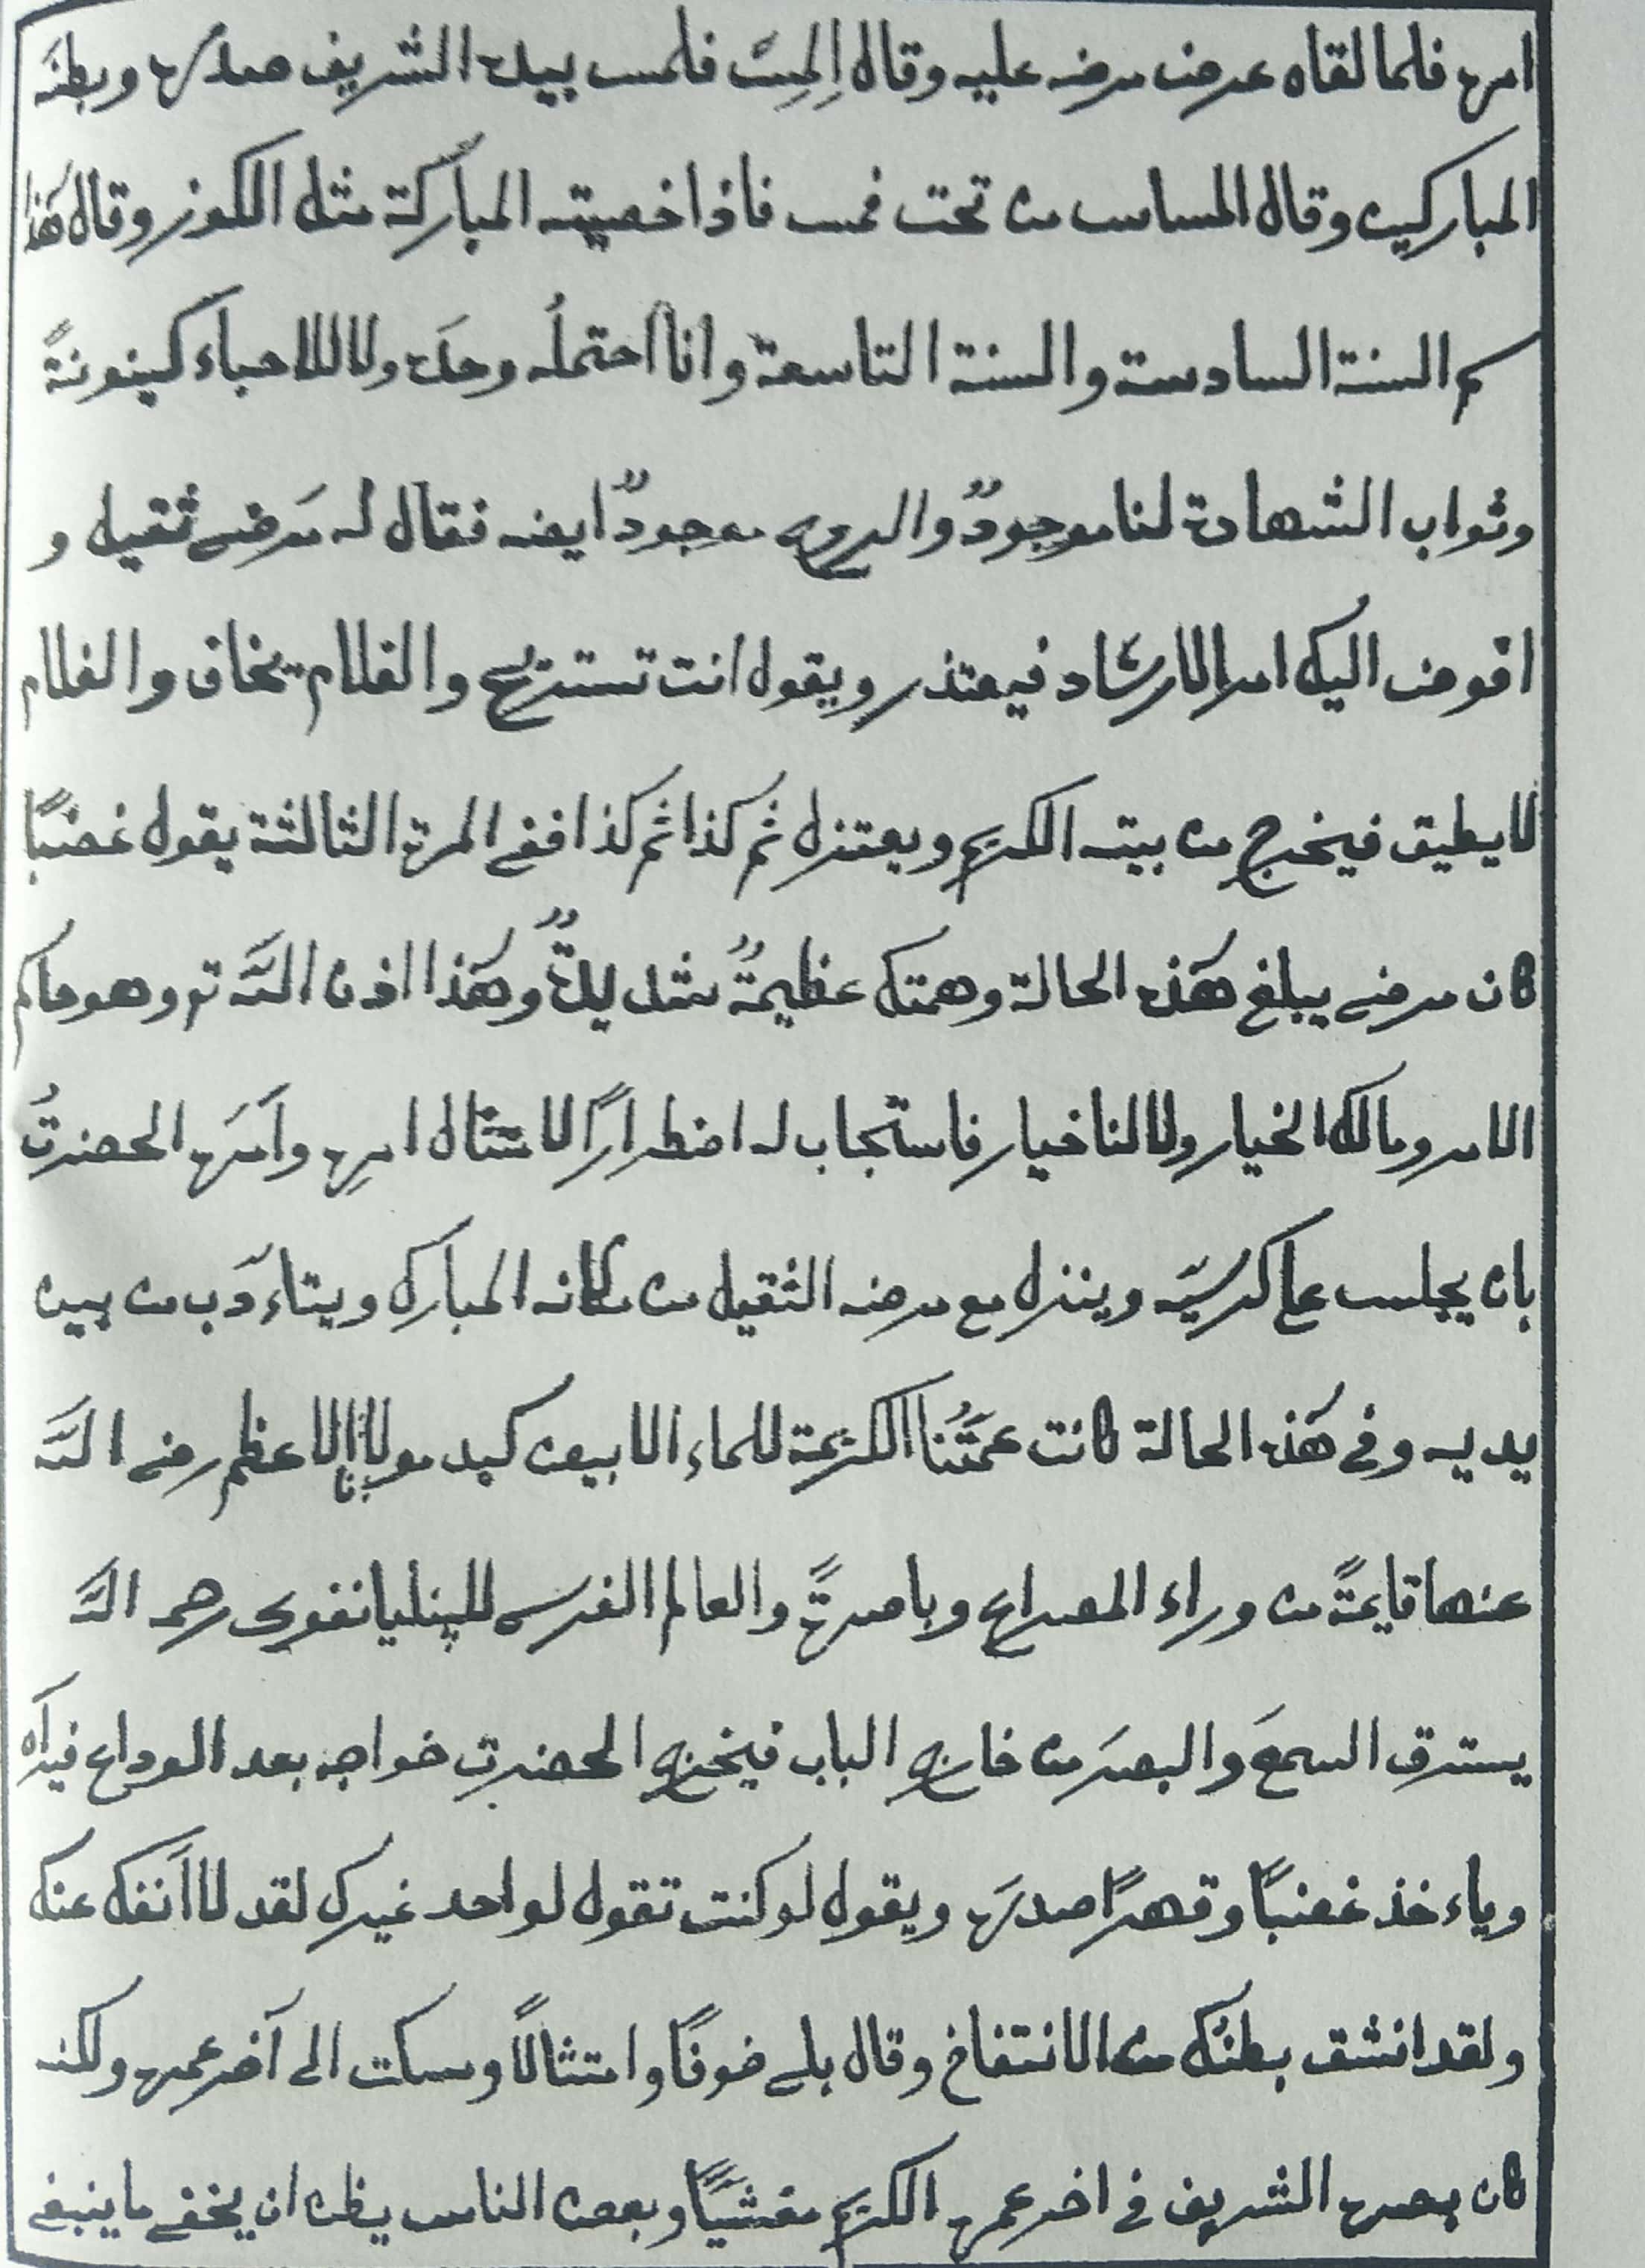 امره فلما لقاه عرض مرضه عليه وقال اِلمِسْ فلمس بيده الشريف صدره وبطنَه
المباركين وقال المساس من تحت فمس فاذا خصيته المباركة مثل الكوز وقال هٰذا
كم السنة السادسة والسنة التاسعة وانا احتملُه وحدَه ولا للاحباء كينونةً
وثواب الشهادة لنا موجودٌ والدروس موجودٌ ايضه فقال له مَرضى ثقيل و
افوض اليك امر الارشاد فيعتذر ويقول انت تستريح والغلام يخاف والغلام
لا يطيق فيخرج من بيته الكريم ويعتزل ثم كذا ثم كذا ففى المرة الثالثة يقول غضبًا
كان مرضى يبلغ هٰذه الحالة وهمتك عظيمةٌ مثل ليلةٌ وهٰذا اذن اللّه تم وهو حاكم
الامر ومالك الخيار ولا لنا خيار فاستجاب له اضطرارًا لامتثال امرِه واَمرَه الحضرتُ
بان يجلس على كرسيَه وينزل مع مرضه الثقيل من مكانه المبارك ويتاءدَب من بين
يديه وفى هٰذه الحالة كانت عمّتُنا الكريمة للماء الابيض كبد مولانا الاعظم رضى اللّه
عنها قايمةً من وراء المصراع وباصرةً والعالم الغرس للپنليانفوى رحمه اللّه
يسترق السمعَ والبصرَ من خارج الباب فيخرج الحضرت خواجه بعد الوداع فيراٰه
وياءخذ غضبًا وقهرًا صدرَه ويقول لو كنت تقول لواحد غيرك لقد لا اَنفك عنك
ولقد انشق بطنُك من الانتفاخ وقال بلى خوفًا وامتثالًا وسكت الى آخر عمره ولكنه
كان بصره الشريف فى اخر عمره الكريم مغشيًّا وبعض الناس يظن ان يخفى ما ينبغى